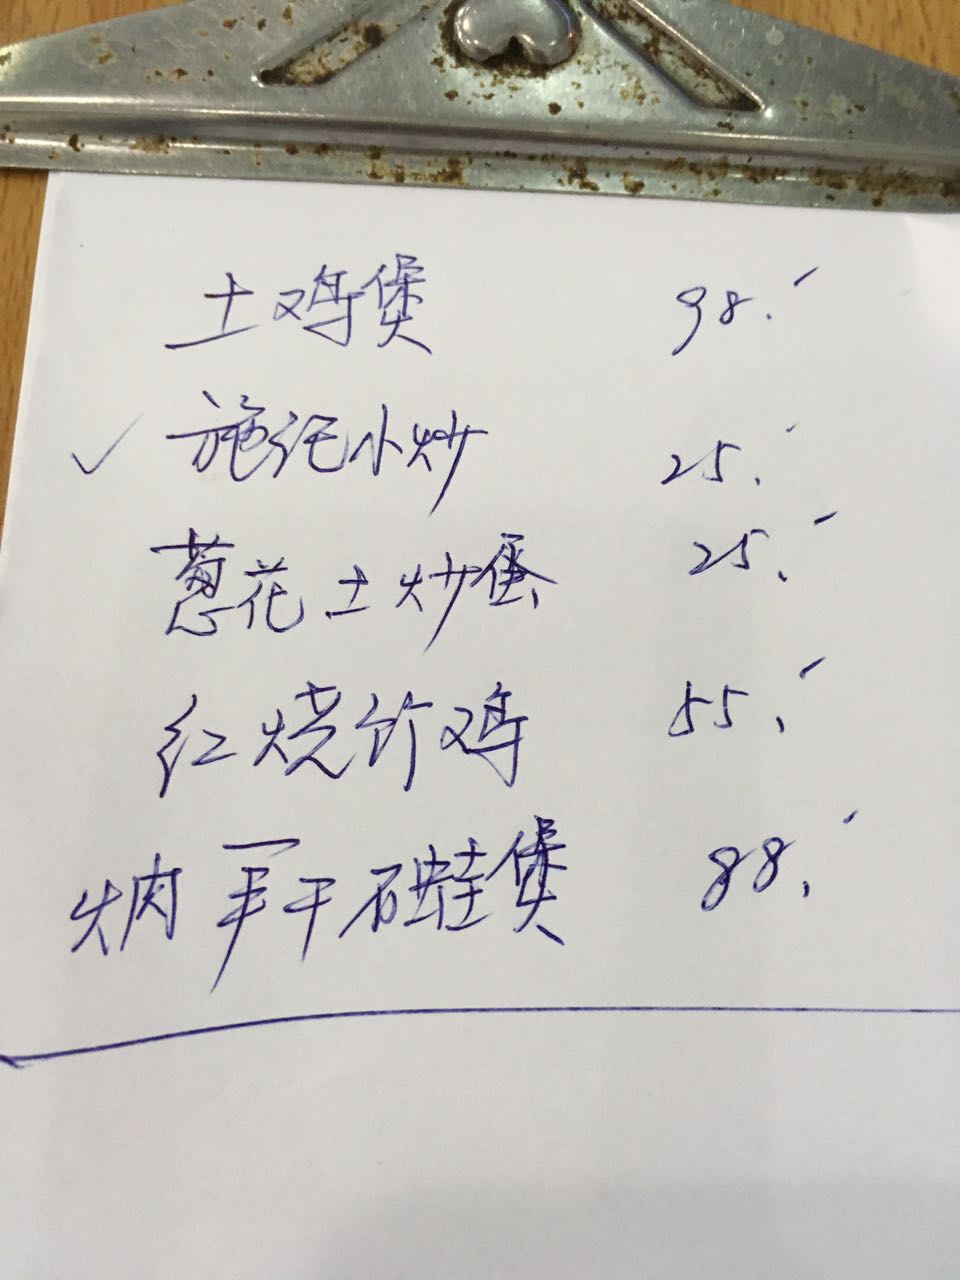 土鸡煲 98.
施纯小炒 25.
葱花土炒蛋 25.
红烧竹鸡 55.
干石蛙煲 88.